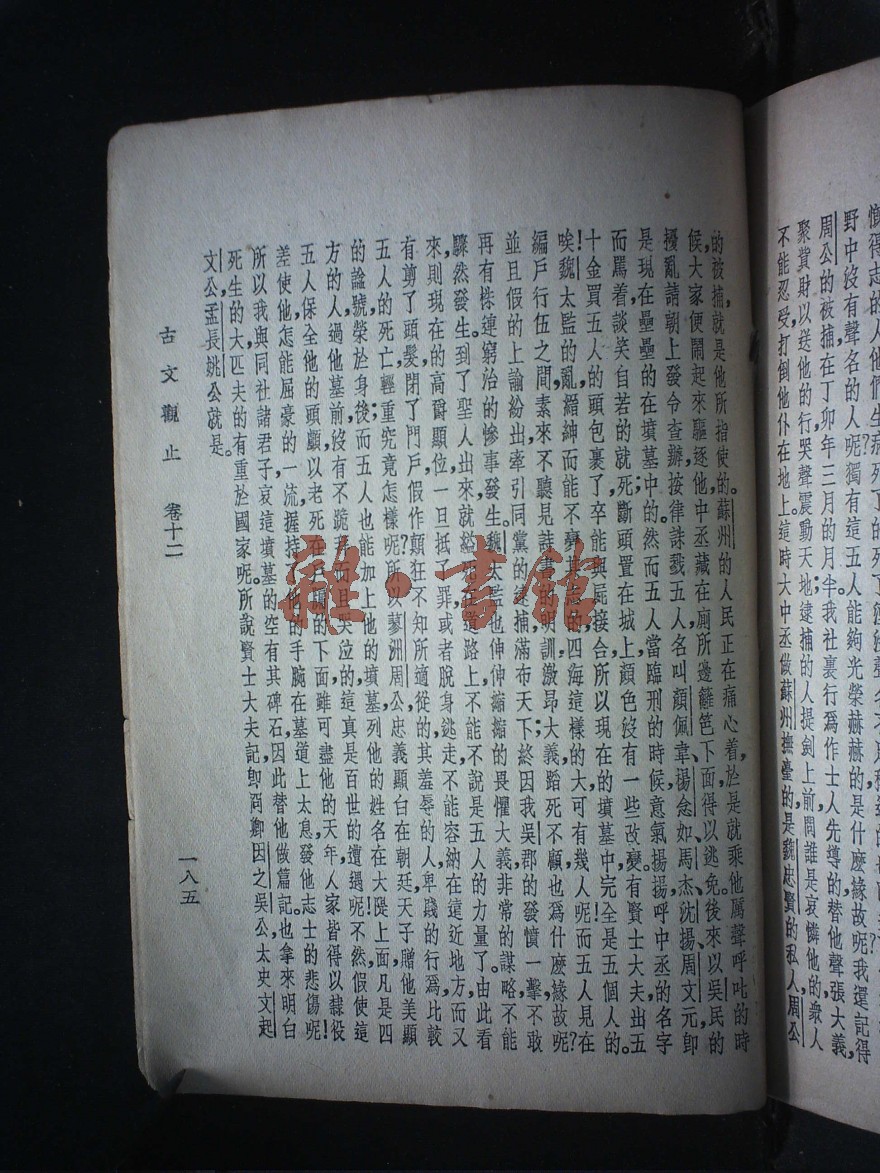 慨得志的人他們生病死了
野中沒有聲名的人呢?獨有這五人能夠光榮赫赫的是什麼緣故呢我還記得
周公的被捕在丁卯年三月的月半我社裏行爲作士人先導的替他聲張大義,
聚貲財以送他的行哭聲震動天地;逮捕的人提劍上前問誰是哀憐他的衆人
不能忍受,打倒他仆在地上。這時大中丞做蘇州撫臺的是魏忠賢的私人,周公
的被捕,就是他所指使的。蘇州的人民正在痛心着,於是就乘他厲聲呼叱的時
候,大家便鬧起來驅逐他,中丞藏在廁所邊籬笆下面得以逃免。後來以吳民的
擾亂請朝上發令查辦,按律誅戮五人,名叫顏佩韋、揚念如、馬杰、沈揚、周文元卽
是現在壘壘的在墳墓中的。然而五人當臨刑的時候,意氣揚揚,呼中丞的名字
而罵着,談笑自若的就死,斷頭置在城上,顏色沒有一些改變。有賢士大夫出五
十金買五人的頭包裹了,卒能與屍接合,所以現在的墳墓中,完全是五個人的。
唉!魏太監的亂,縉紳而能不變其志的,四海這樣的大可有幾人呢?而五人見在
編戶行伍之間,素來不聽見詩書的明訓,激昂大義,蹈死不顧,也爲什麼緣故呢?
並且假的上諭紛出,牽引同黨的逮捕滿布天下,終因我吳郡的發憤一擊,不敢
再有株連窮治的慘事發生。魏太監也伸伸縮縮的畏懼大義,非常的謀略不能
驟然發生。到了聖人出來就縊死在道路上,不能不說是五人的力量了。由此看
來,則現在的高爵顯位一旦抵了罪,或者脫身逃走,不能容納在遠近地方,而又
有剪了頭髮,閉了門戶,假作顛狂不知所適從的,其羞辱的人,卑賤的行爲,比較
五人的死亡,輕重究竟怎樣呢?所以蓼洲周公忠義顯白在朝廷,天子贈他美顯
的諡號,榮於身後;而五人也能加上他的墳墓,列他的姓名在大隄上面,凡是四
方的人,過他墓前,沒有不跪拜而且哭泣的,這真是百世的遭遇呢!不然,假使這
五人保全他的頭顱以老死在戶牖的下面,雖可盡他的天年,人家皆得以隸役
差使他,怎能屈豪的一流,握持他的手腕,在墓道上太息,發他志士的悲傷呢!
所以我與同社諸君子,哀這墳墓的空有其碑石,因此替他做篇記。也拿來明白
死生的大,匹夫的有重於國家呢。所說賢士大夫記卽冏卿因之吳公,太史文起
文公,孟長姚公就是。
古文觀止 卷十二
一八五
雜·書館